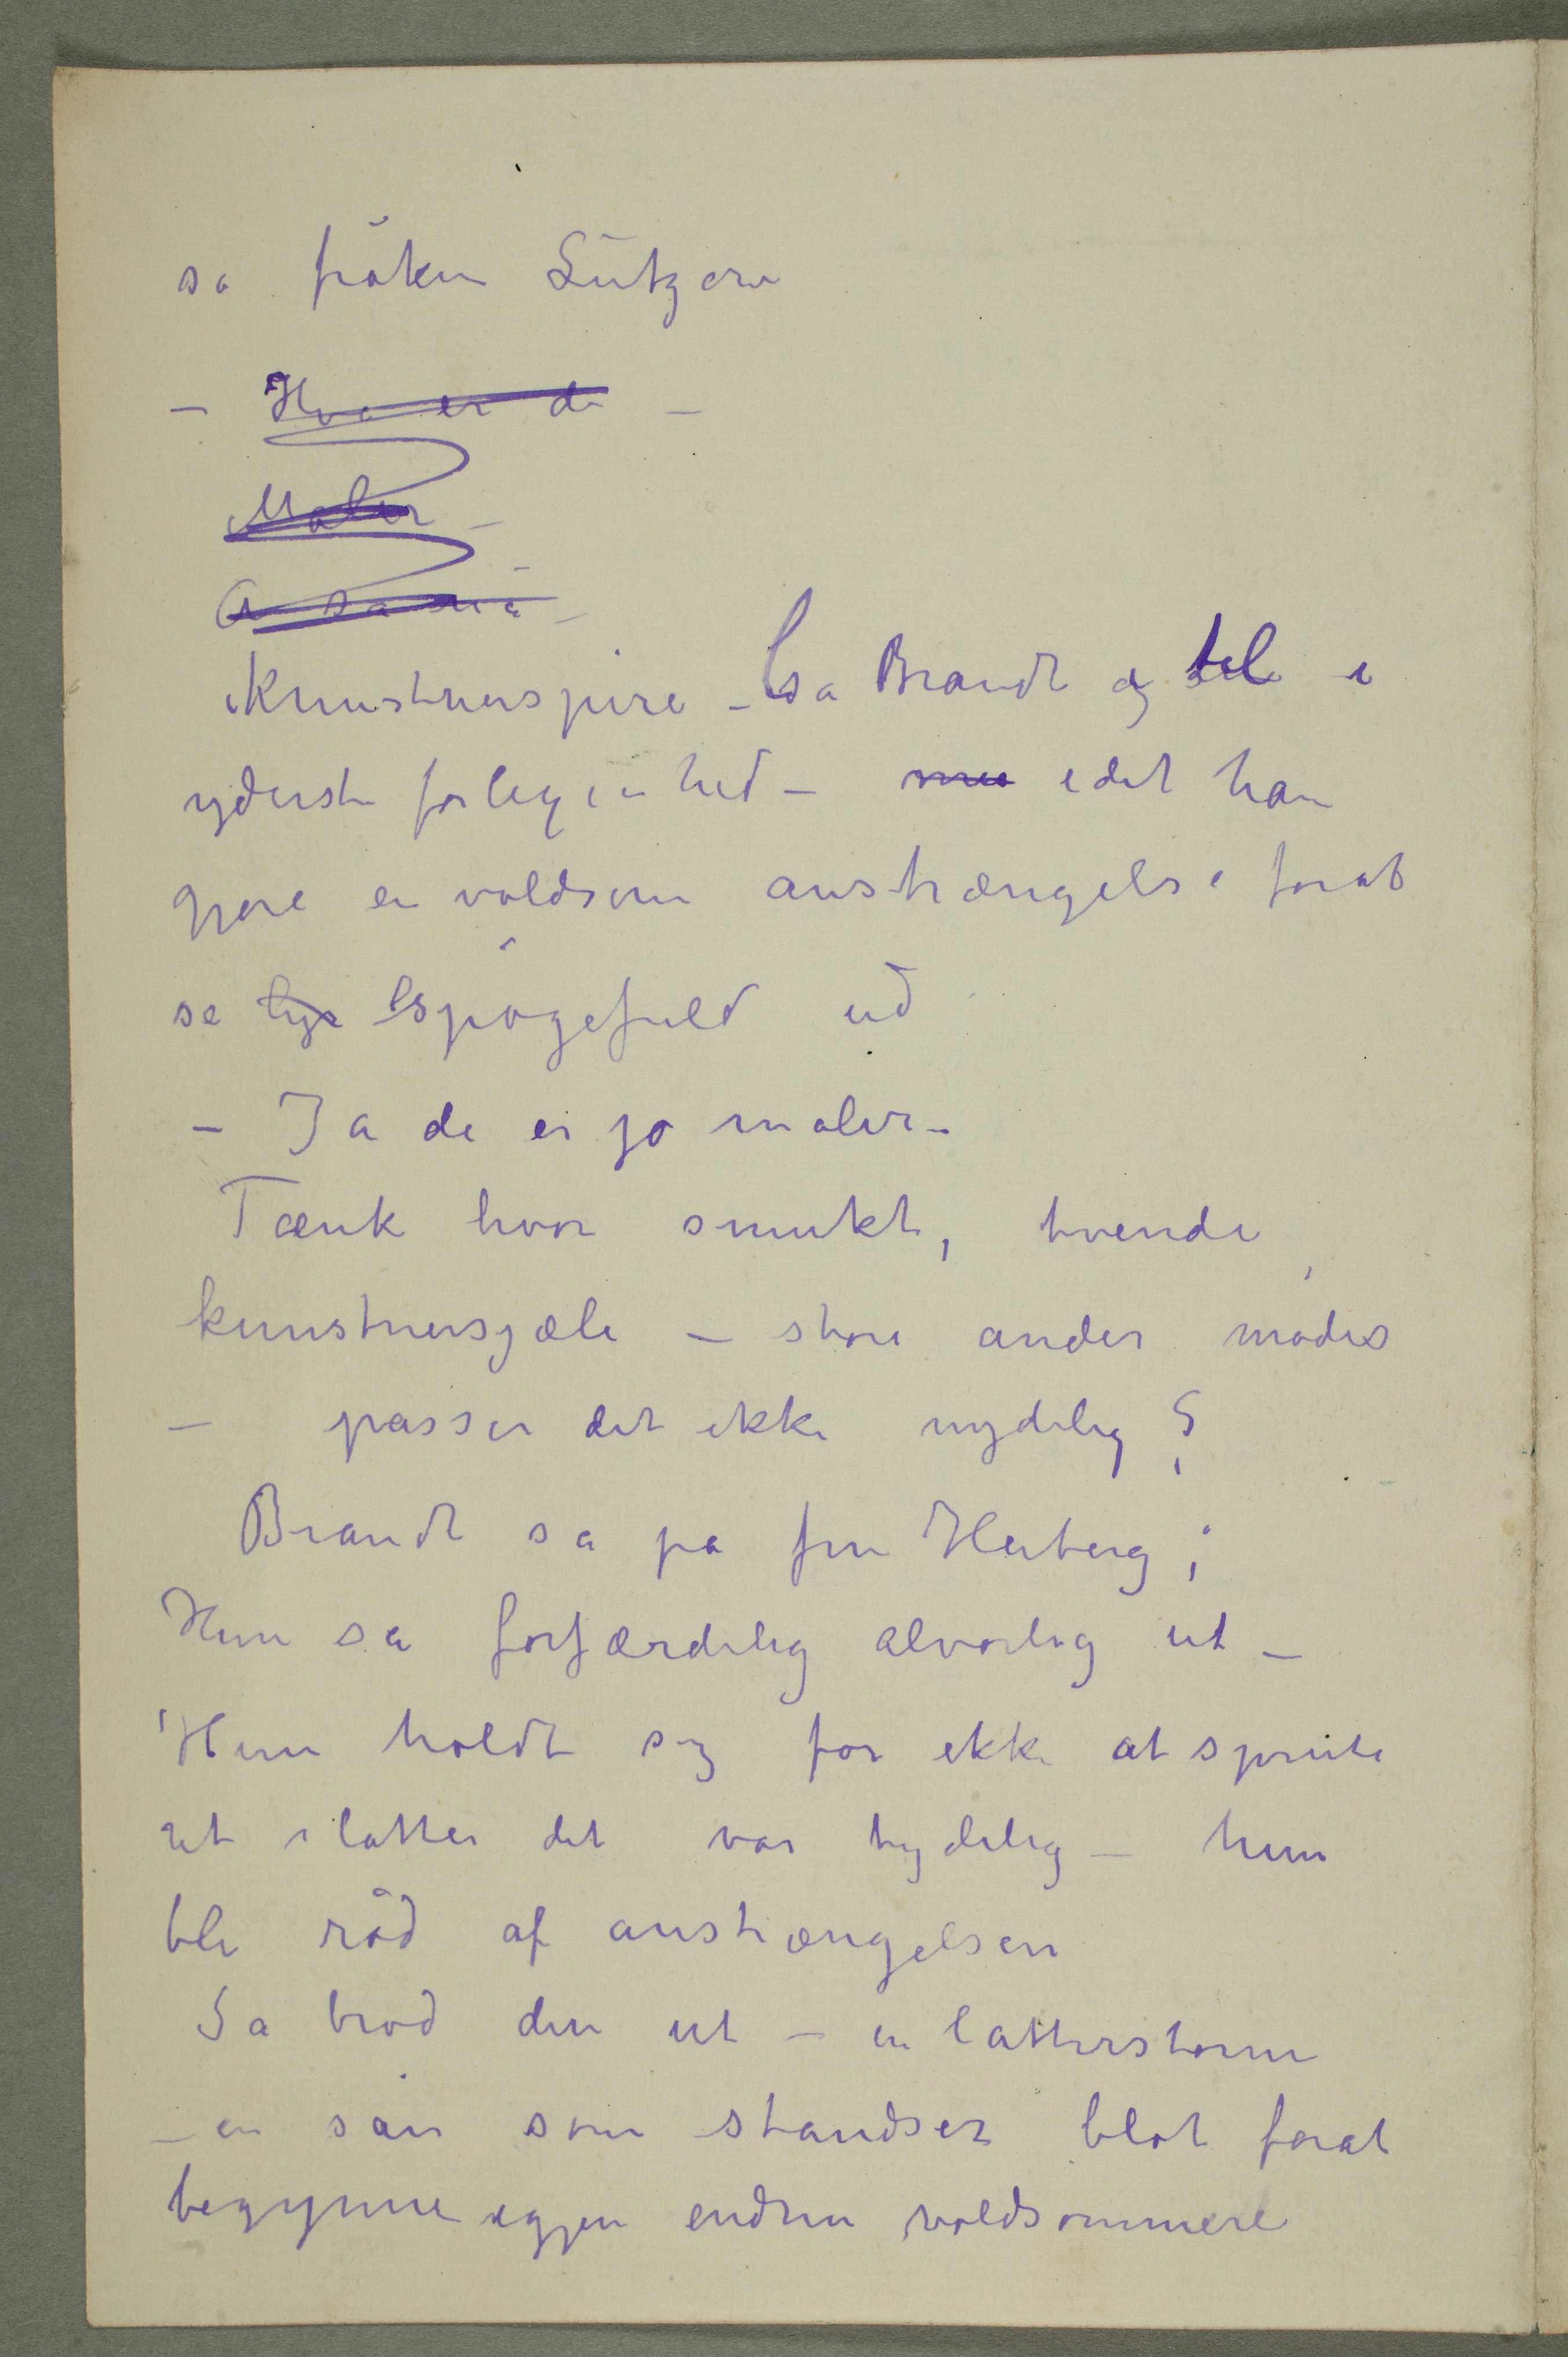 sa fröken Lützow
– Hva er de –
Maler –
A så må –
Kunstnerspire – sa Brandt og ble i
yderste forlegenhed – idet han
gjøre en voldsom anstrængelse forat
se lys spøgefuld ud
– Ja de er jo maler –
Tænk hvor smukt, tvende
kunstnersjæle – store ander mødes
– passer det ikke nydelig?
Brandt så på fru Heiberg;
Hun så forfærdelig alvorlig ut –
Hun holdt sig for ikke at sprute
ut i latter det var tydelig – hun
ble rød af anstrængelsen
Så brød den ut – en latterstorm
– en sån som standser blot forat
begynne igjen endnu voldsommere